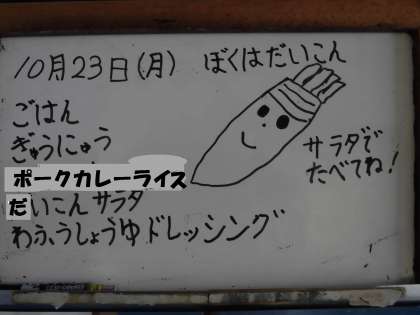 10月23日(月)
ぼくはだいこん
ごはん
ぎゅうにゅう
ポークカレーライス
だいこんサラダ
わふうしょうゆドレッシング
サラダで
たべてね!